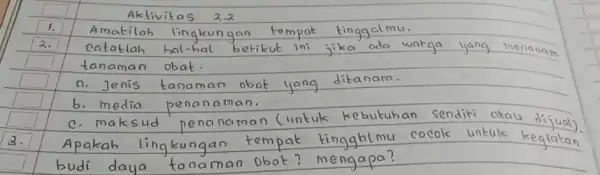 Aktivitas 2.2
1. Amatilah lingkungan tempat tinggalmu.
2. catatlah hal-hal berikut ini jika ada warga yang menanam
tanaman obat.
a. Jenis tanaman obat yang ditanam.
b. media penanaman.
c. maksud penanaman (untuk kebutuhan sendiri atau dijual).
3. Apakah lingkungan tempat tinggalmu cocok untuk kegiatan
budi daya tanaman obat? mengapa?